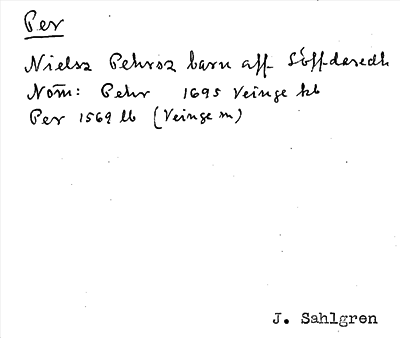 Per
Nielsz Pehrsz barn aff Söffdaredh
Nom̄: Pehr 1695 Veinge kb
Per 1569 lb (Veinge m)
J. Sahlgren